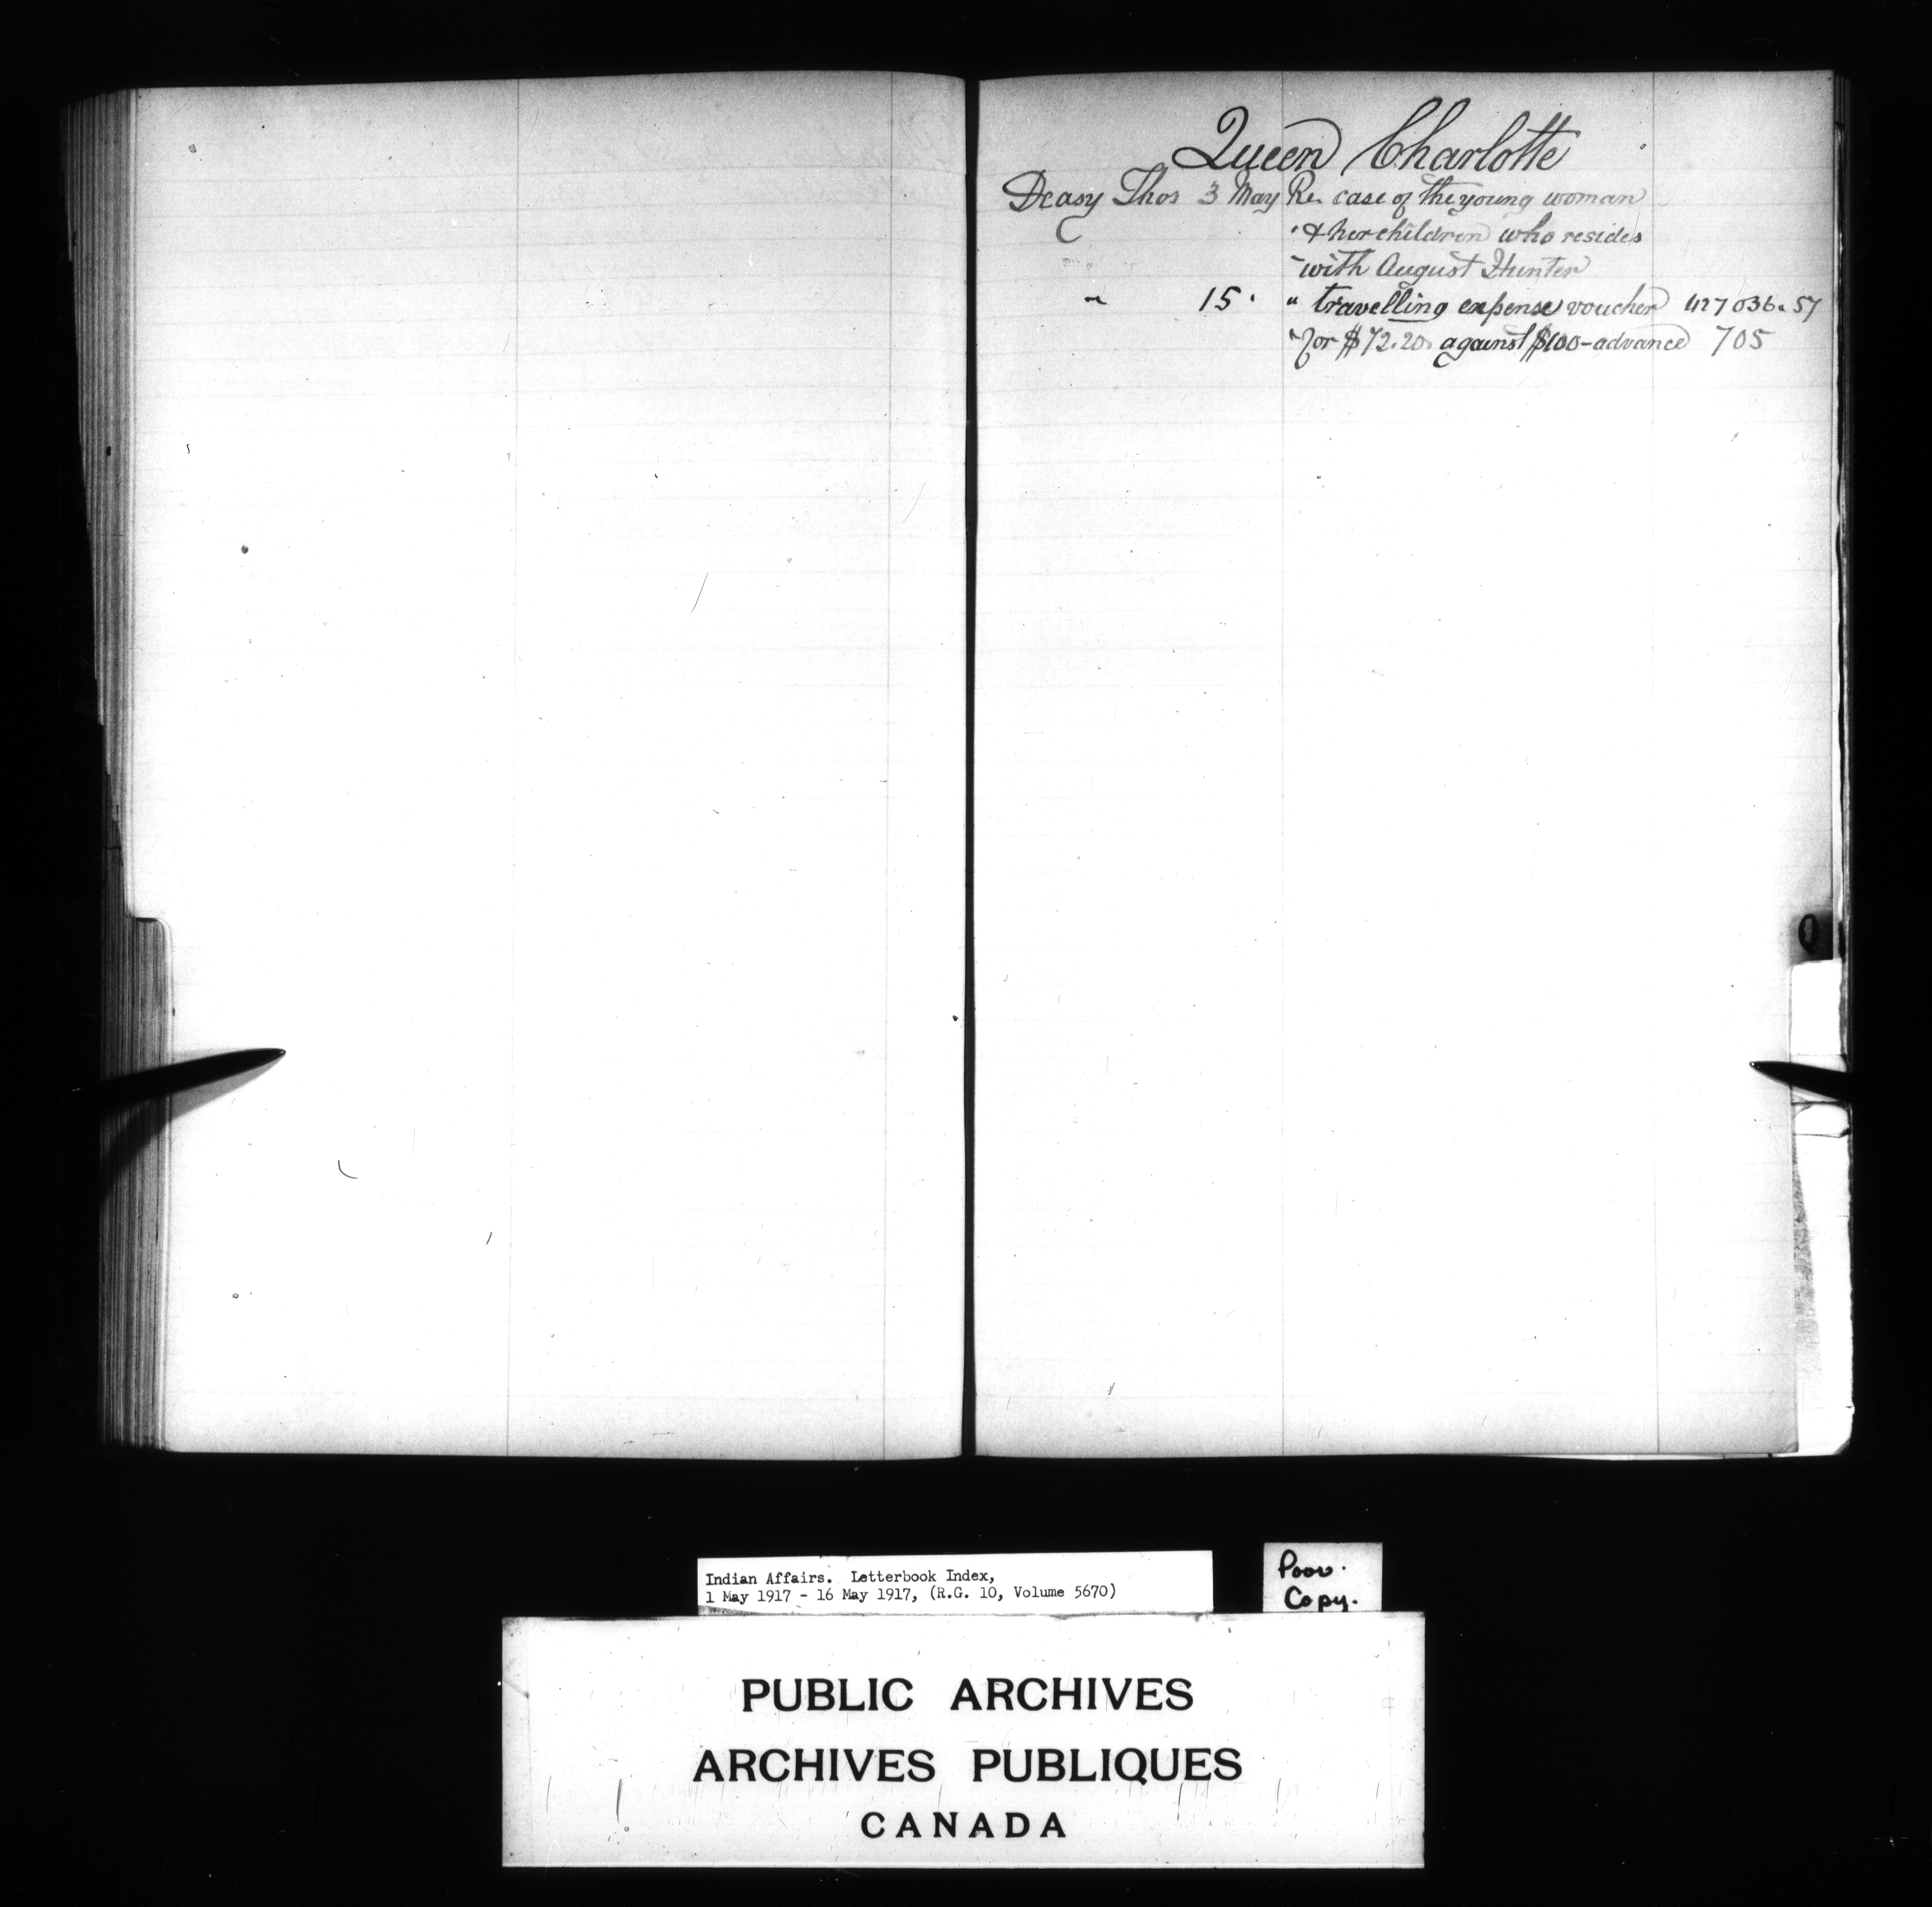 Queen Charlotte
Deasy Thos 3 May Re. case of the young woman
" & her children who resides
" with August Hunter
" 15 " " travelling expense voucher 427036-57
" for $72.20 against $100- advance 705
Q
Indian Affairs. Letterbook Index,
1 May 1917 - 16 May 1917, (R.G. 10, Volume 5670)
Poor
Copy.
PUBLIC ARCHIVES
ARCHIVES PUBLIQUES
CANADA